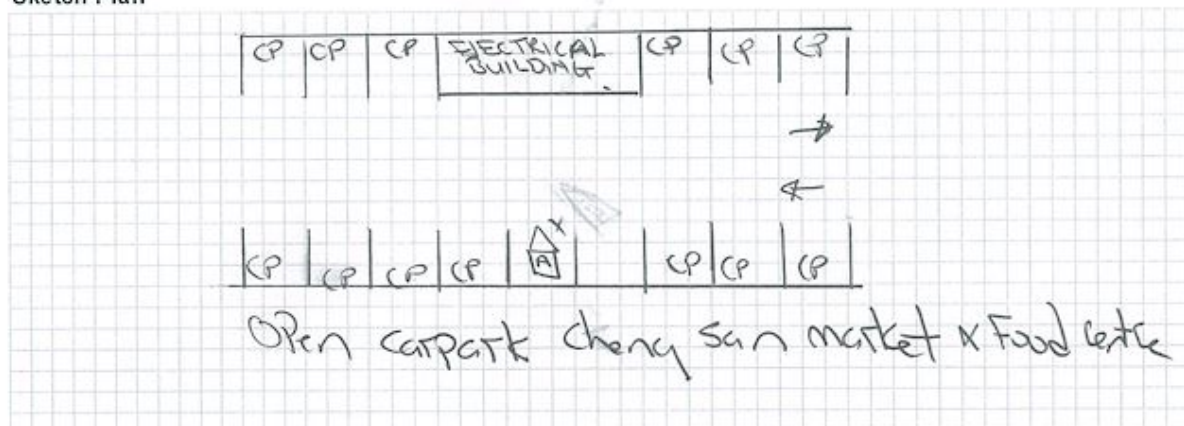 Sketch Plan
CP CP CP ELECTRICAL CP CP CP
BUILDING
A
CP CP CP CP CP CP CP
Open carpark cheng san market & Food centre